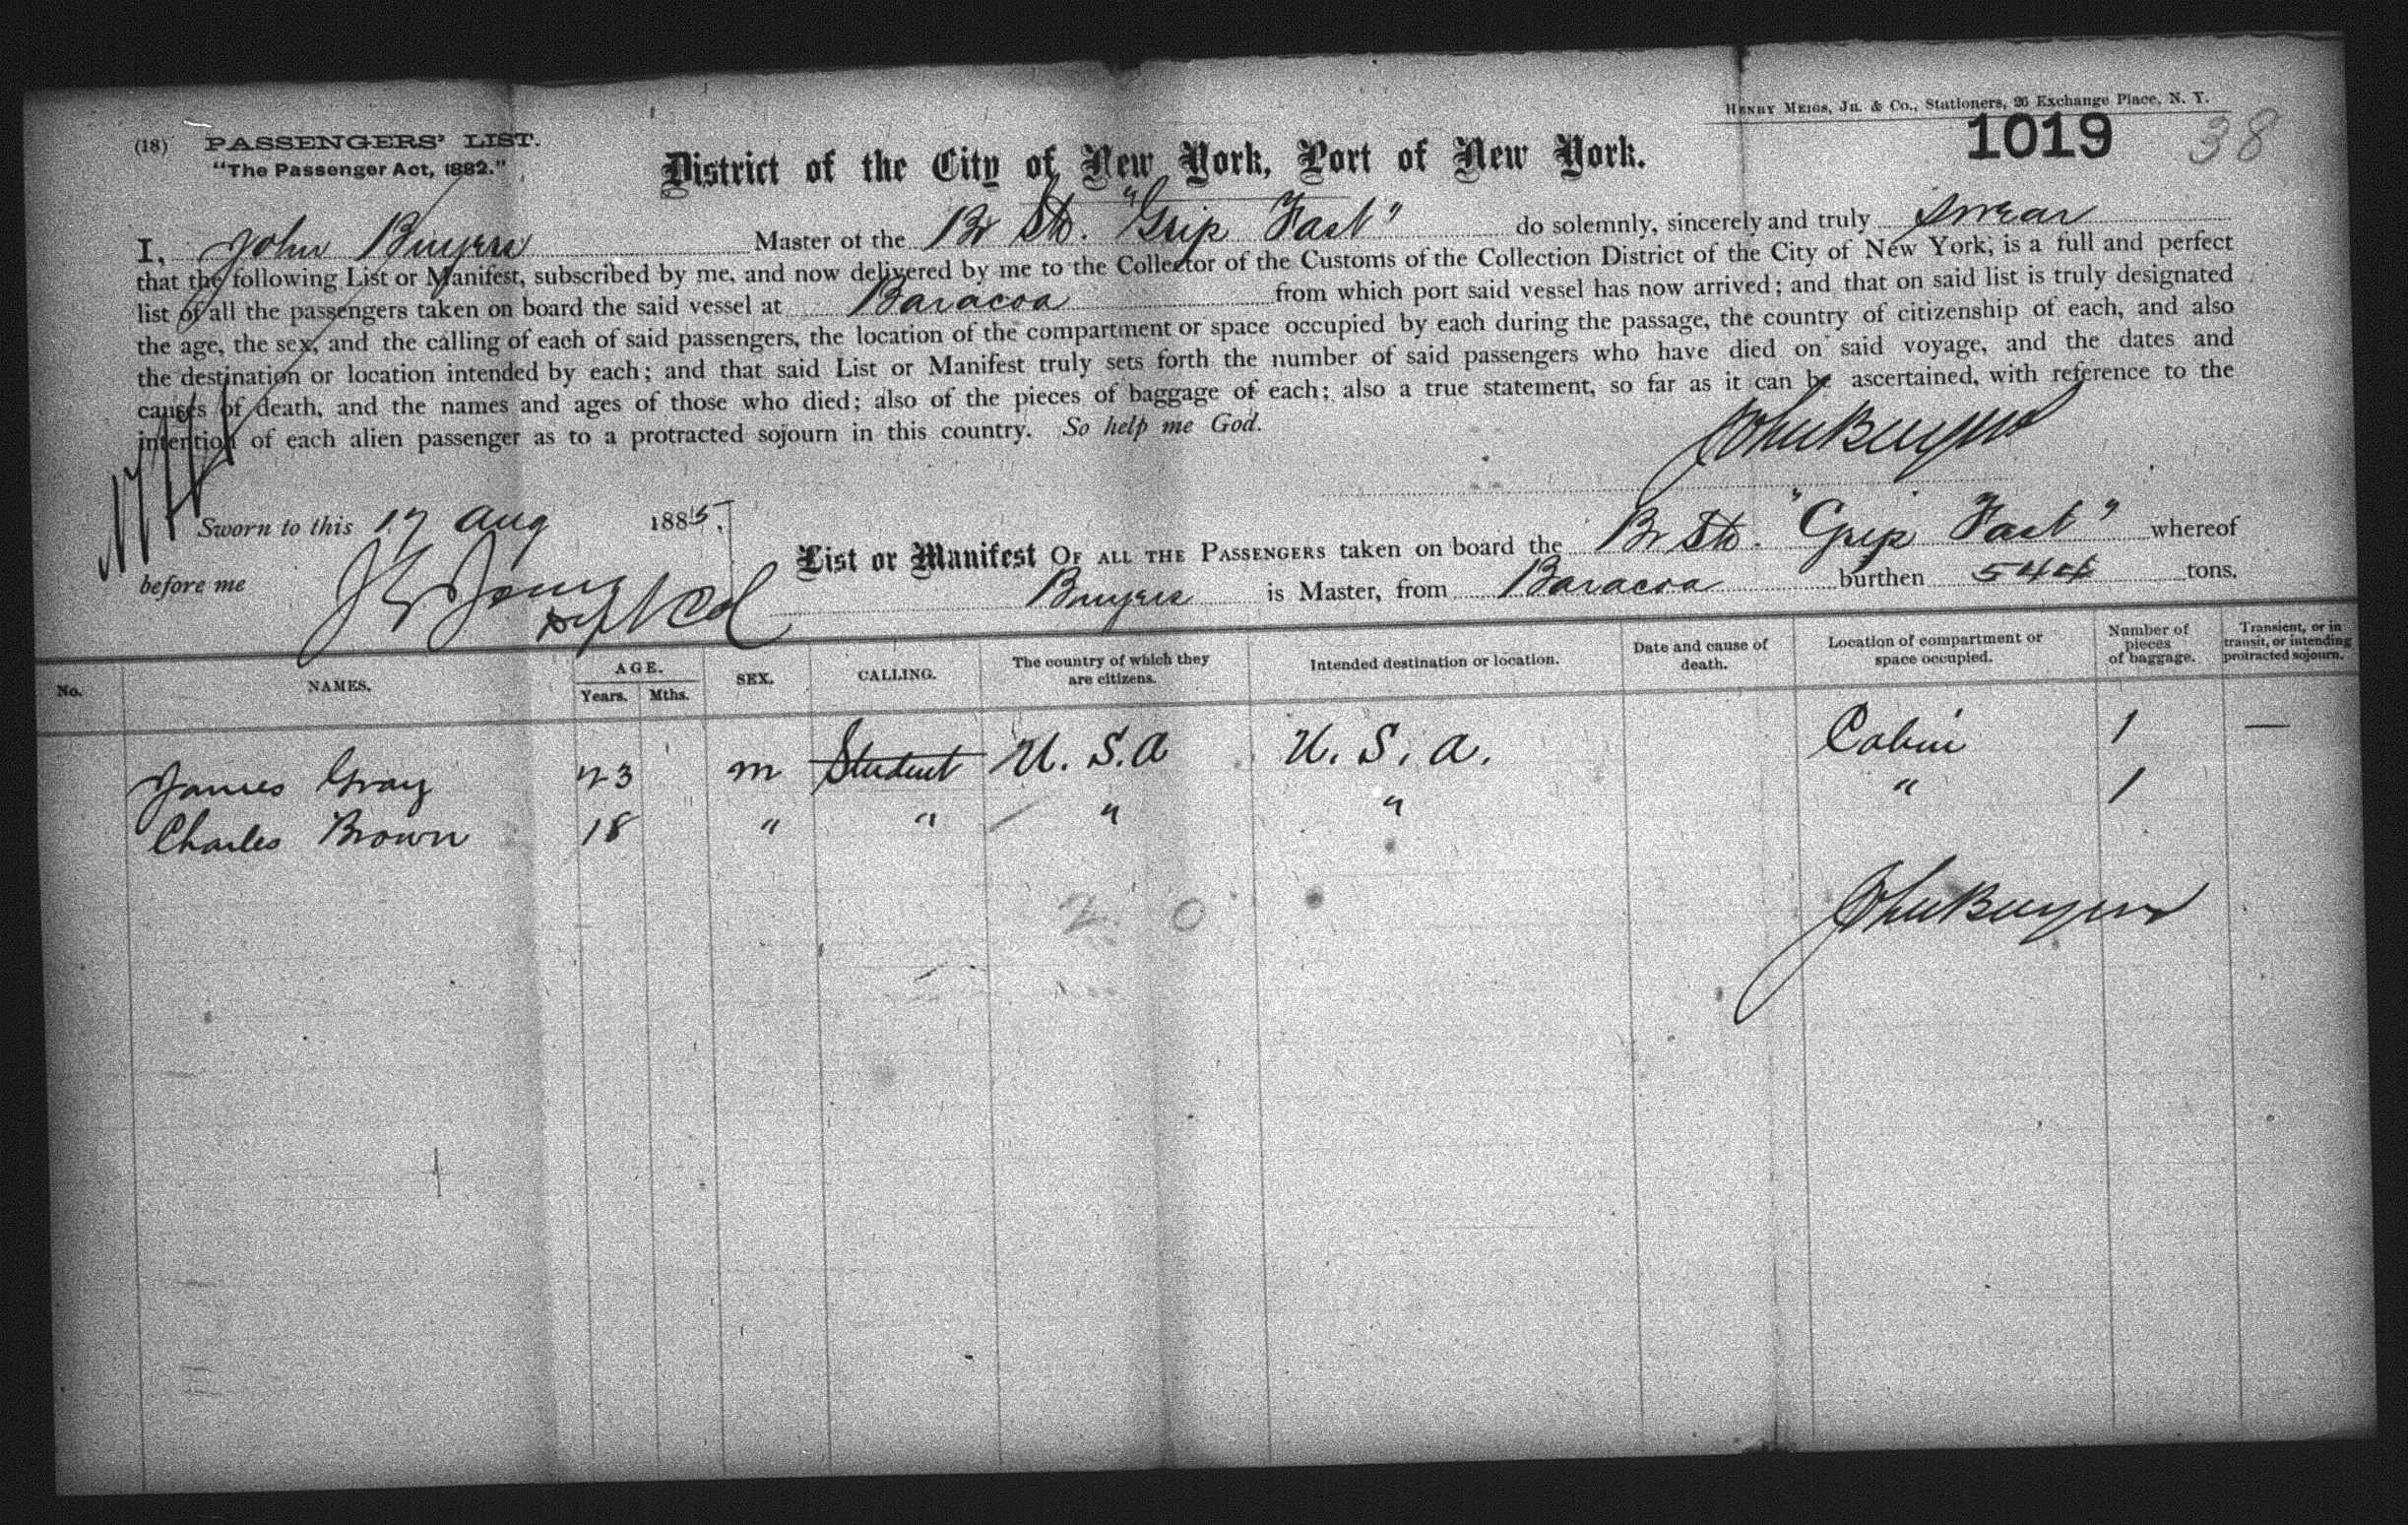 HENRY MEIGS, JR. & CO., Stationers, 26 Exchange Place, N. Y.
(18) PASSENGERS' LIST.
"The Passenger Act, 1882."
1019 38
District of the City of New York, Port of New York.
I, John Buyers Master of the Br Str. "Grip Fast" do solemnly, sincerely and truly swear
that the following List or Manifest, subscribed by me, and now delivered by me to the Collector of the Customs of the Collection District of the City of New York, is a full and perfect
list of all the passengers taken on board the said vessel at Baracoa from which port said vessel has now arrived; and that on said list is truly designated
the age, the sex, and the calling of each of said passengers, the location of the compartment or space occupied by each during the passage, the country of citizenship of each, and also
the destination or location intended by each; and that said List or Manifest truly sets forth the number of said passengers who have died on said voyage, and the dates and
causes of death, and the names and ages of those who died; also of the pieces of baggage of each; also a true statement, so far as it can be ascertained, with reference to the
intention of each alien passenger as to a protracted sojourn in this country. So help me God.
John Buyers
Sworn to this 17 Aug 1885,
before me
List or Manifest OF ALL THE PASSENGERS taken on board the Br Str. "Grip Fast" whereof
Buyers is Master, from Baracoa burthen tons.
No. NAMES. AGE. Years. Mths. SEX. CALLING. The country of which they are citizens. Intended destination or location. Date and cause of death. Location of compartment or space occupied. Number of pieces of baggage. Transient, or in transit, or intending protracted sojourn.
James Gray 23 m Student U. S. A U. S. A. Cabin 1 —
Charles Brown 18 " " " " " 1
2 0
John Buyers